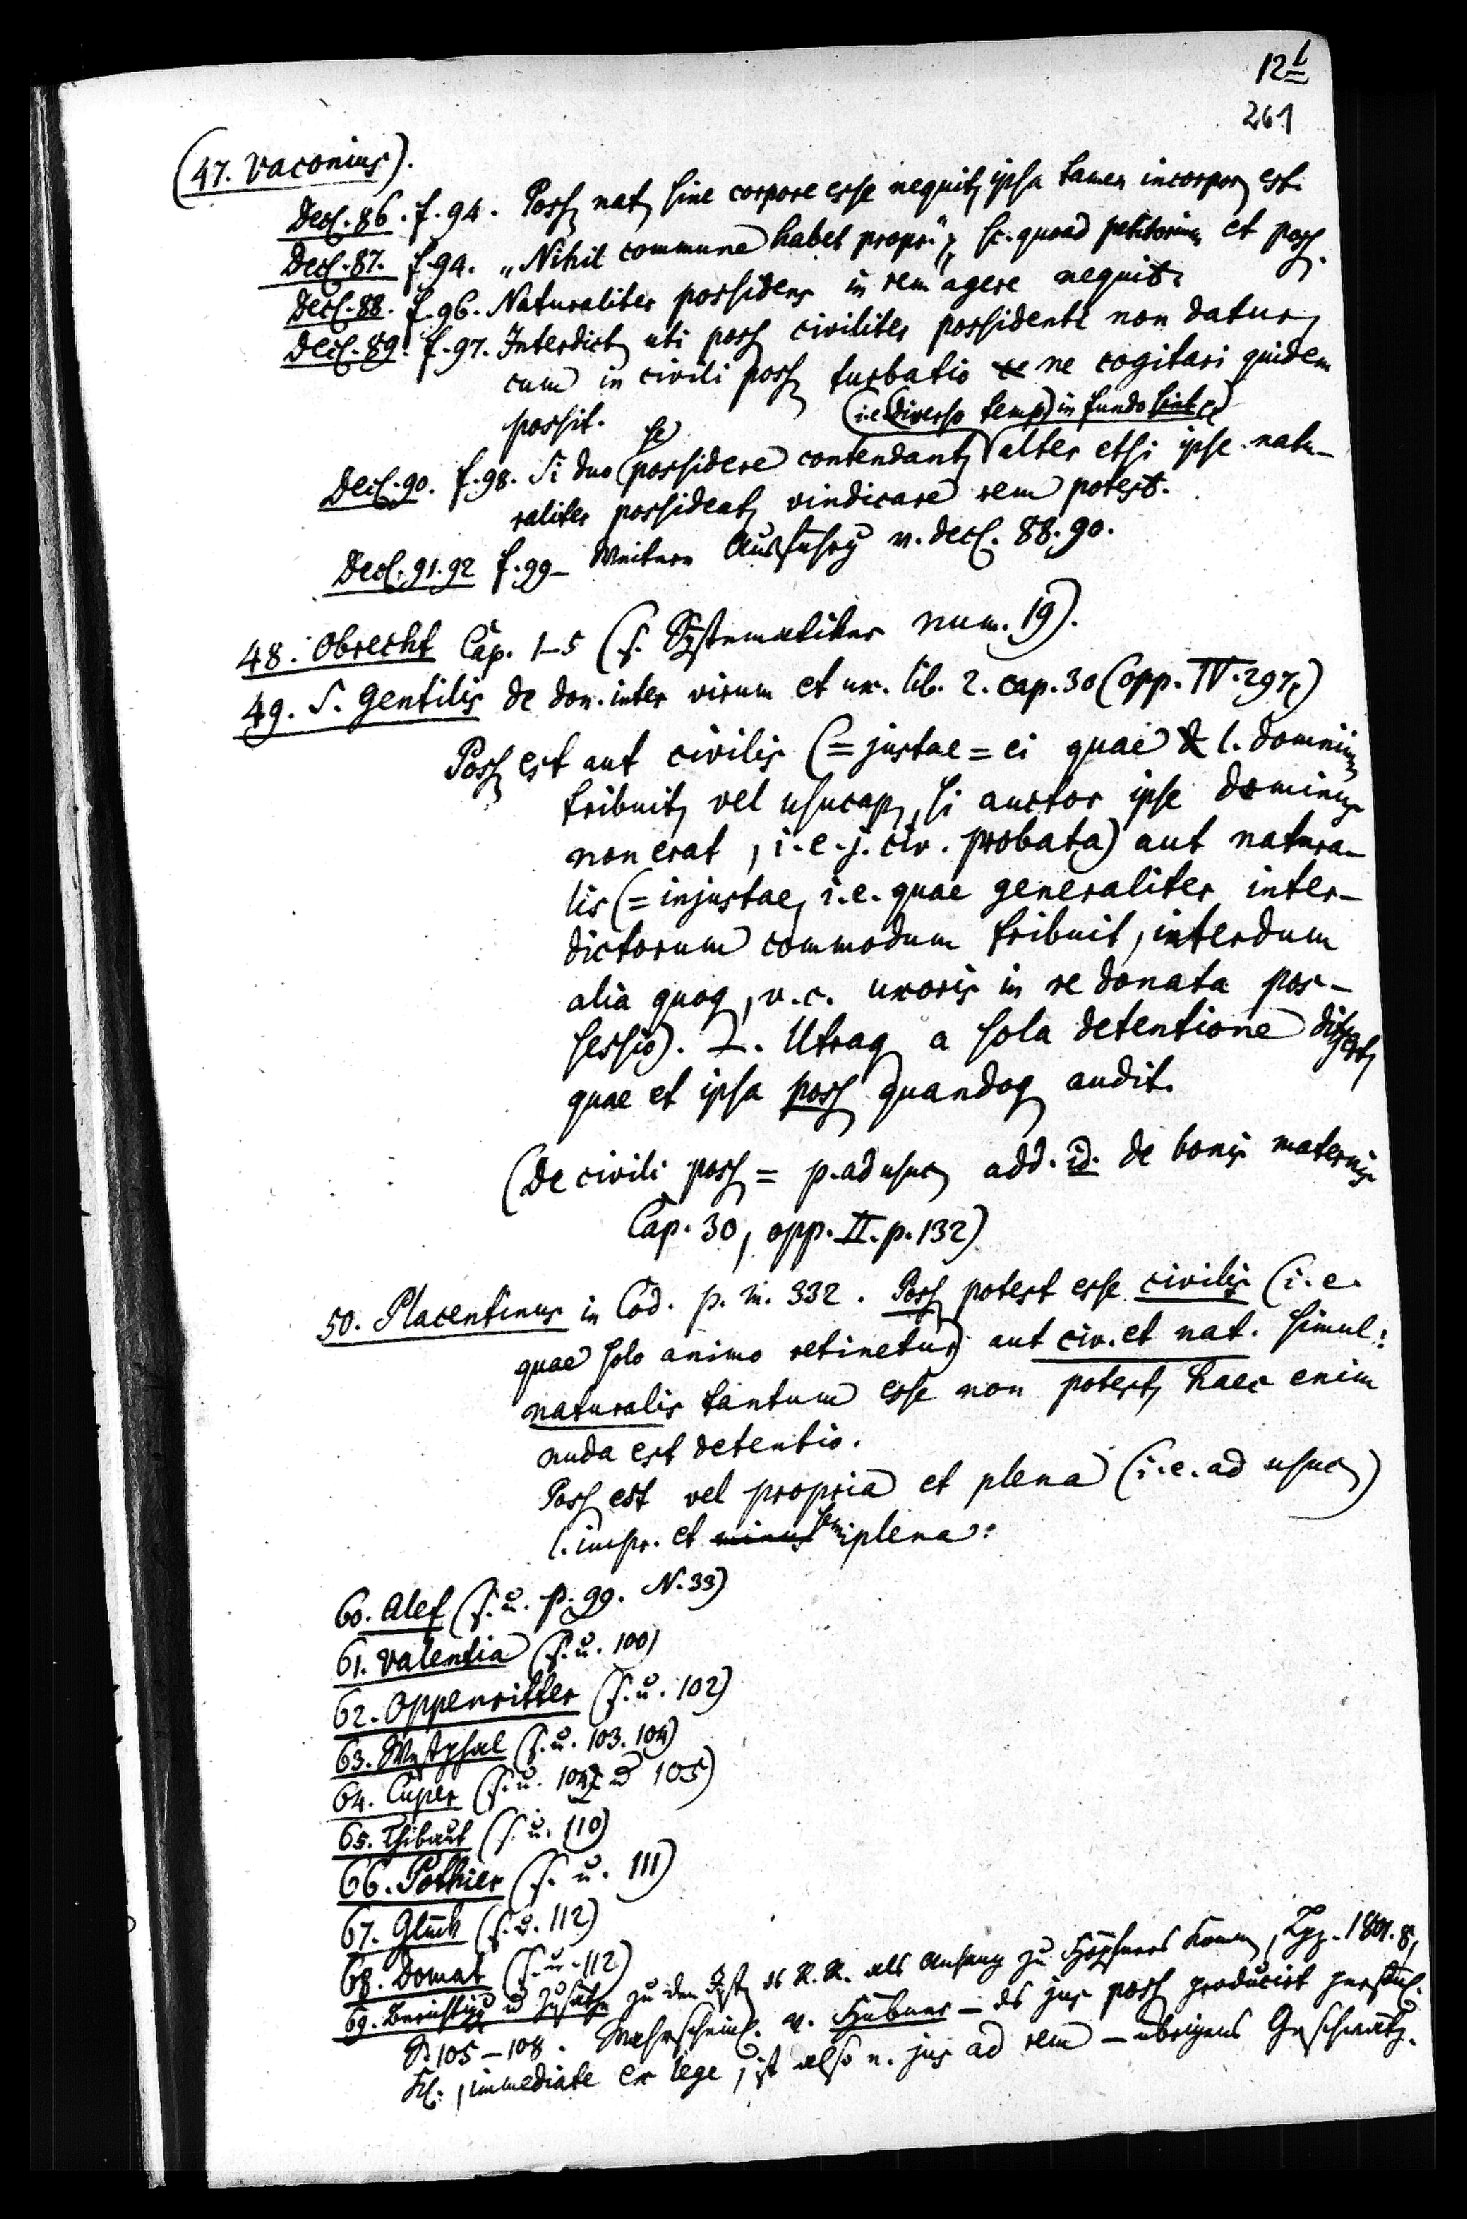 12b
261
(47. Vaconius).
Decl. 86. f. 94. Poss. nat. sine corpore esse nequit, ipsa tamen incorpor. est.
Decl. 87. f. 94. „Nihil commune habet propr." sc. quoad petitorium et poss.
Decl. 88. f. 96. Naturaliter possidens in rem agere nequit.
Decl. 89. f. 97. Interdict. uti poss. civiliter possidenti non datur,
cum in civili poss. turbatio ne cogitari quidem
possit.
(i.e. (diverso temp.) in fundo sint)
Decl. 90. f. 98. Si duo se possidere contendant, alter etsi ipse natu-
raliter possideat, vindicare rem potest.
Decl. 91. 92 f. 99 – Weitere Ausführg v. decl. 88. 90.
48. Obrecht Cap. 1–5 (s. Systematiker num. 19).
49. S. Gentilis de don. inter virum et ux. lib. 2. cap. 30 (opp. IV. 297.)
Poss. est aut civilis (= justae = ei quae l. dominium
tribuit, vel usucap., si auctor ipse dominus
non erat, i. e. j. civ. probata) aut natura-
lis (= injustae, i. e. quae generaliter inter-
dictorum commodum tribuit, interdum
alia quoq, v. c. uxoris in re donata pos-
sessio). Utraq a sola detentione differt,
quae et ipsa poss. quandoq audit.
(De civili poss. = p. ad usuc. add. id. de bonis maternis
Cap. 30, opp. II. p. 132)
50. Placentinus in Cod. p. m. 332. Poss. potest esse civilis (i. e.
quae solo animo retinetur) aut civ. et nat. simul:
naturalis tantum esse non potest, haec enim
nuda est detentio.
Poss. est vel propria et plena (i. e. ad usuc.)
l. impr. et minus semiplena:
60. Alef (s. u. p. 99. N. 33)
61. Valentia (s. u. 100)
62. Oppenritter (s. u. 102)
63. Westphal (s. u. 103. 104)
64. Cuper (s. u. 104 u 105)
65. Thibaut (s. u. 110)
66. Pothier (s. u. 111)
67. Glück (s. u. 112)
68. Domat (s. u. 112)
69. Berichtigg u Zusätze zu den Inst. ds R. R. als Anhang zu Höpfners Komm., Lpz. 1801. 8,
S. 105–108. Wahrscheinl. v. Hübner – ds jus poss. producirt persönl.
Kl., immediate ex lege, ist also n. jus ad rem – übrigens Geschwätz.